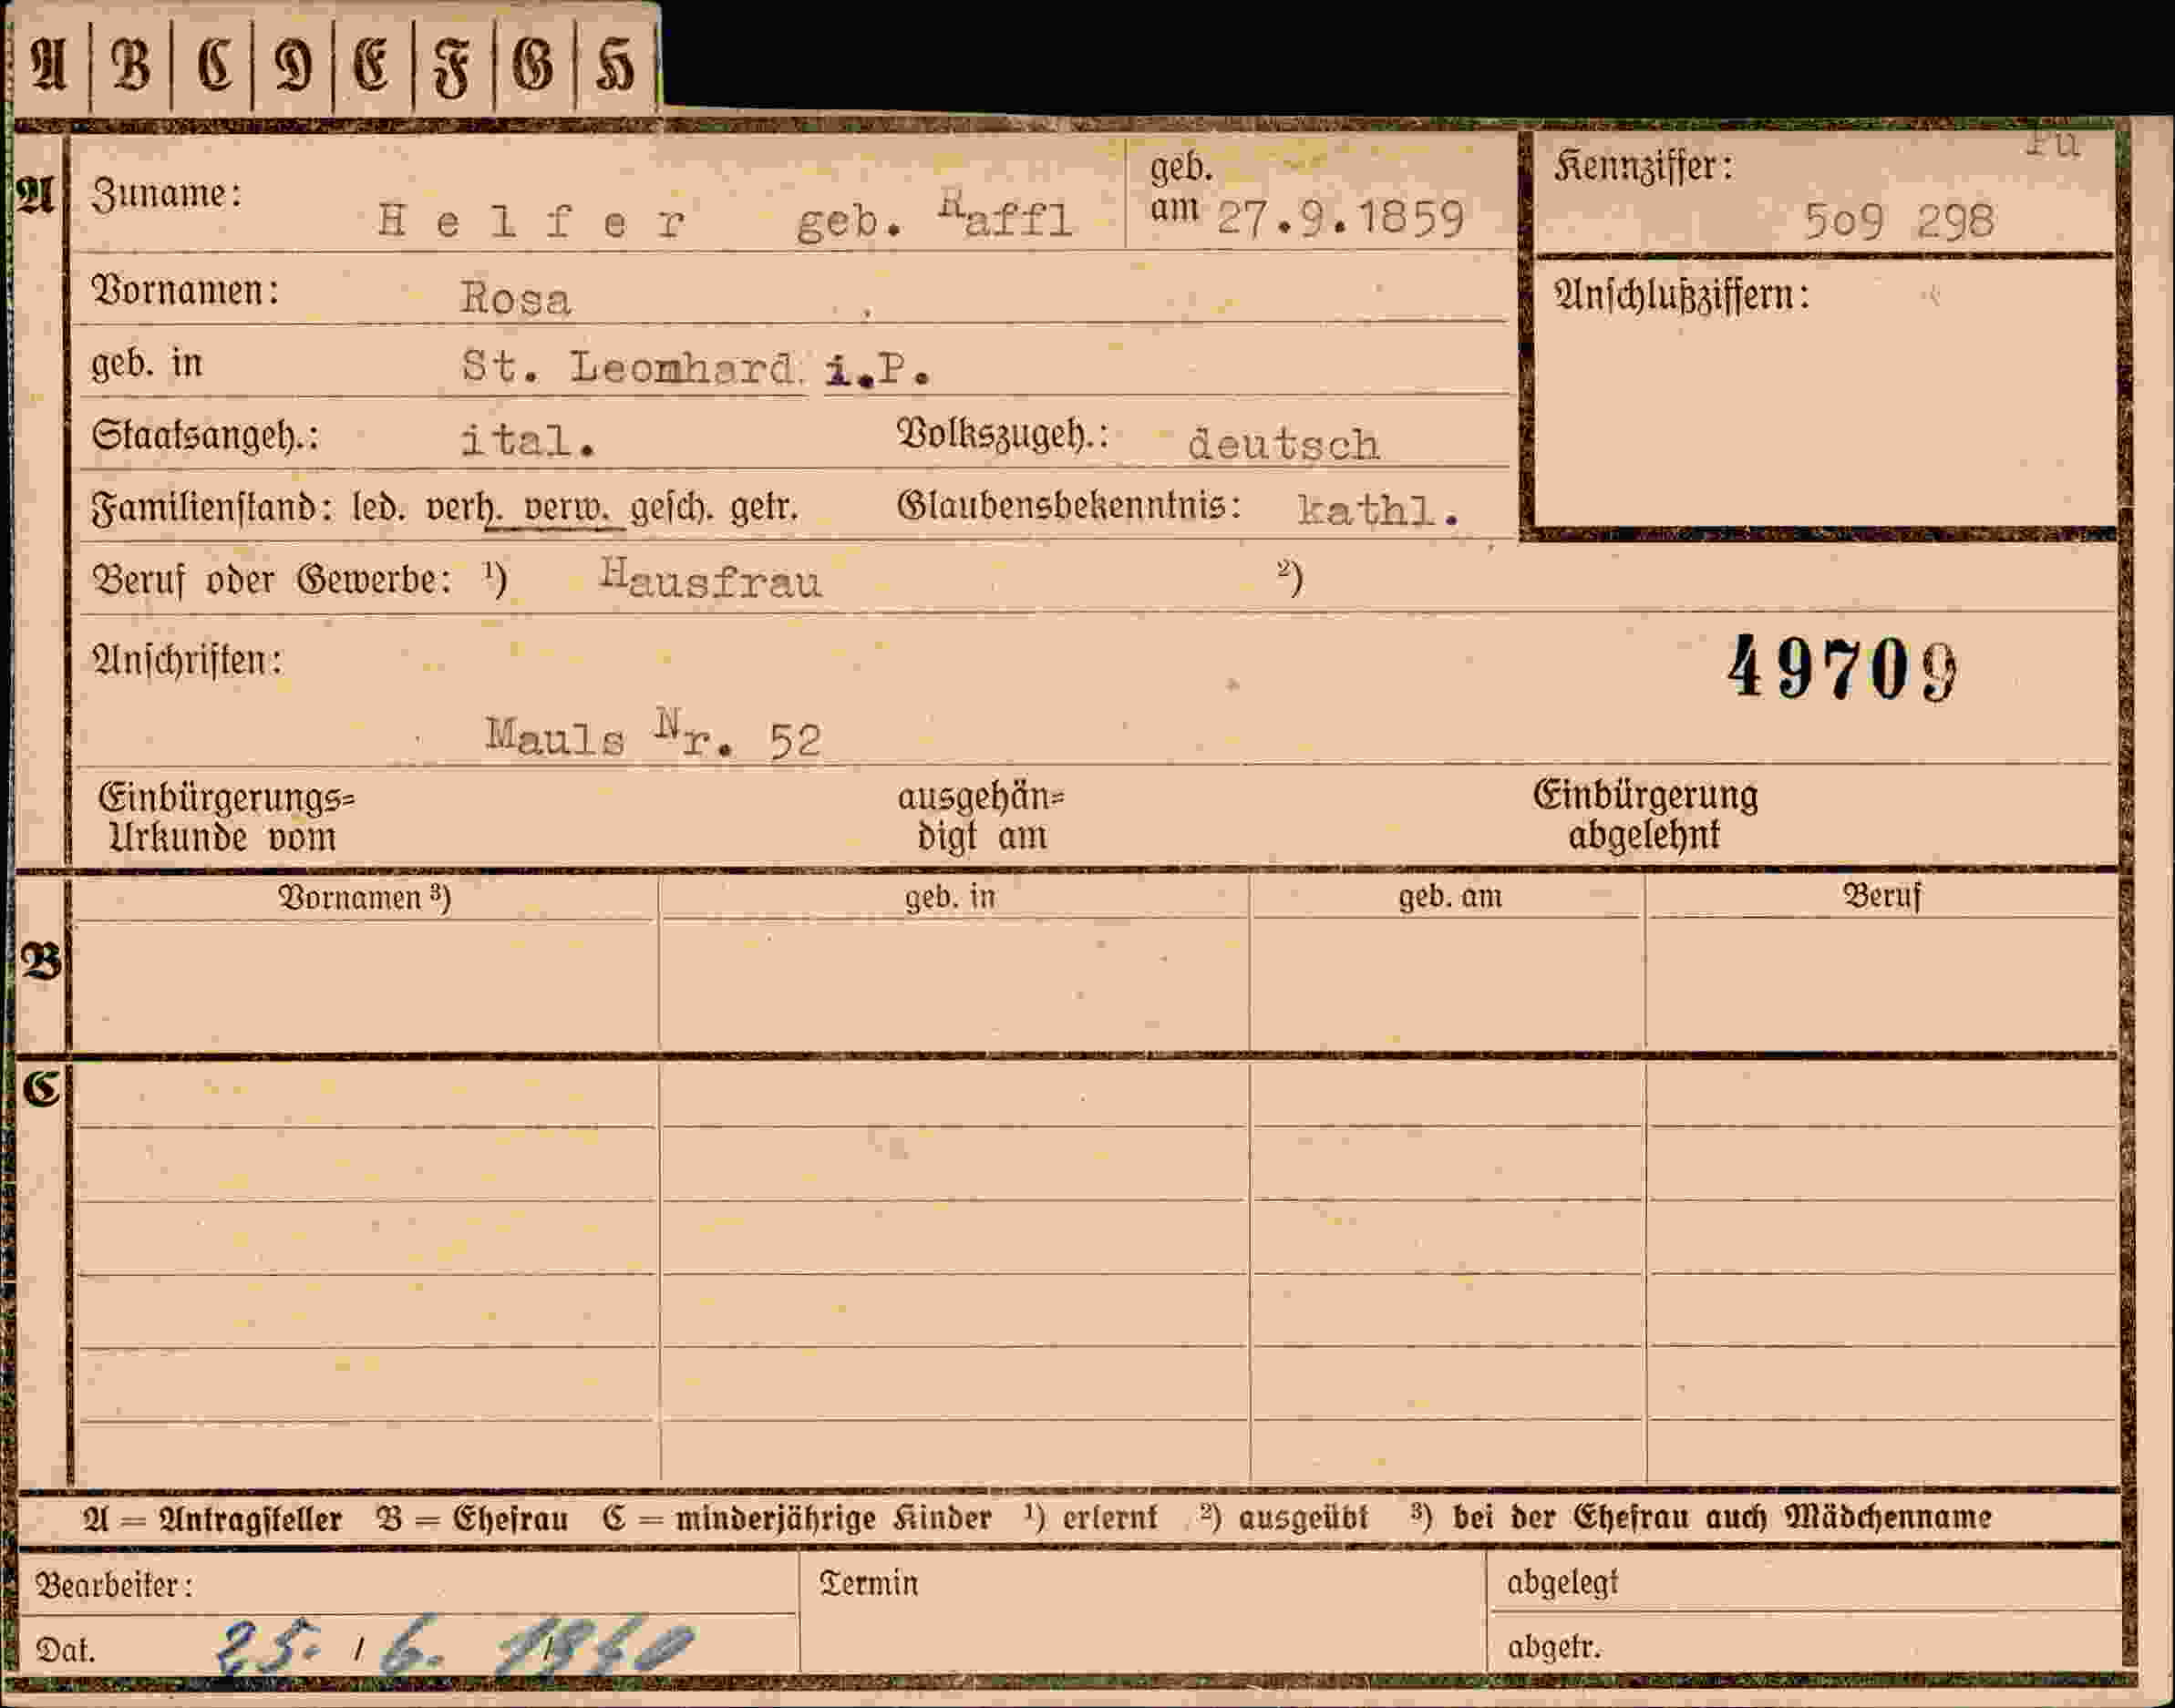 A B C D E F G H
Fu
A Zuname: Helfer geb. Raffl geb. am 27.9.1859 Kennziffer: 509 298
Vornamen: Rosa Anschlußziffern:
geb. in St. Leonhard i.P.
Staatsangeh.: ital. Volkszugeh.: deutsch
Familienstand: led. verh. verw. gesch. getr. Glaubensbekenntnis: kathl.
Beruf oder Gewerbe: ¹) Hausfrau ²)
Anschriften: 49709
Mauls Nr. 52
Einbürgerungs= ausgehän= Einbürgerung
Urkunde vom digt am abgelehnt
Vornamen ³) geb. in geb. am Beruf
B
C
A = Antragsteller B = Ehefrau C = minderjährige Kinder ¹) erlernt ²) ausgeübt ³) bei der Ehefrau auch Mädchenname
Bearbeiter: Termin abgelegt
Dat. 25. / 6. / 1940 abgetr.